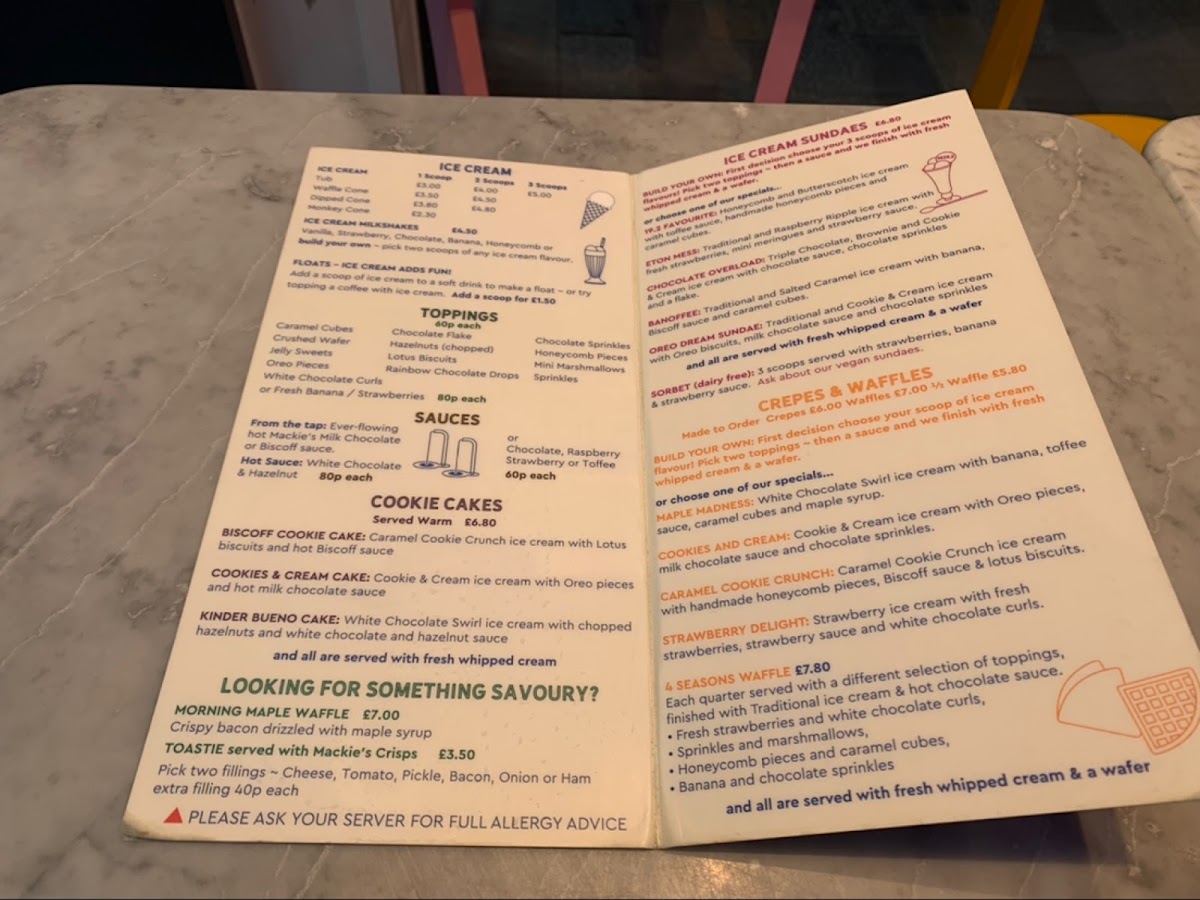 ICE CREAM
ICE CREAM 1 Scoop 2 Scoops 3 Scoops
Tub £3.00 £4.00 £5.00
Waffle Cone £3.50 £4.50
Dipped Cone £3.80 £4.80
Monkey Cone £2.30
ICE CREAM MILKSHAKES £4.50
Vanilla, Strawberry, Chocolate, Banana, Honeycomb or
build your own ~ pick two scoops of any ice cream flavour.
FLOATS ~ ICE CREAM ADDS FUN!
Add a scoop of ice cream to a soft drink to make a float ~ or try
topping a coffee with ice cream. Add a scoop for £1.50
TOPPINGS
60p each
Caramel Cubes Chocolate Flake Chocolate Sprinkles
Crushed Wafer Hazelnuts (chopped) Honeycomb Pieces
Jelly Sweets Lotus Biscuits Mini Marshmallows
Oreo Pieces Rainbow Chocolate Drops Sprinkles
White Chocolate Curls
or Fresh Banana / Strawberries 80p each
SAUCES
From the tap: Ever-flowing
hot Mackie's Milk Chocolate
or Biscoff sauce.
Hot Sauce: White Chocolate
& Hazelnut 80p each
or
Chocolate, Raspberry
Strawberry or Toffee
60p each
COOKIE CAKES
Served Warm £6.80
BISCOFF COOKIE CAKE: Caramel Cookie Crunch ice cream with Lotus
biscuits and hot Biscoff sauce
COOKIES & CREAM CAKE: Cookie & Cream ice cream with Oreo pieces
and hot milk chocolate sauce
KINDER BUENO CAKE: White Chocolate Swirl ice cream with chopped
hazelnuts and white chocolate and hazelnut sauce
and all are served with fresh whipped cream
LOOKING FOR SOMETHING SAVOURY?
MORNING MAPLE WAFFLE £7.00
Crispy bacon drizzled with maple syrup
TOASTIE served with Mackie's Crisps £3.50
Pick two fillings ~ Cheese, Tomato, Pickle, Bacon, Onion or Ham
extra filling 40p each
PLEASE ASK YOUR SERVER FOR FULL ALLERGY ADVICE
ICE CREAM SUNDAES £6.80
BUILD YOUR OWN: First decision choose your 3 scoops of ice cream
flavours! Pick two toppings ~ then a sauce and we finish with fresh
whipped cream & a wafer.
or choose one of our specials...
19.2 FAVOURITE: Honeycomb and Butterscotch ice cream
with toffee sauce, handmade honeycomb pieces and
caramel cubes.
ETON MESS: Traditional and Raspberry Ripple ice cream with
fresh strawberries, mini meringues and strawberry sauce.
CHOCOLATE OVERLOAD: Triple Chocolate, Brownie and Cookie
& Cream ice cream with chocolate sauce, chocolate sprinkles
and a flake.
BANOFFEE: Traditional and Salted Caramel ice cream with banana,
Biscoff sauce and caramel cubes.
OREO DREAM SUNDAE: Traditional and Cookie & Cream ice cream
with Oreo biscuits, milk chocolate sauce and chocolate sprinkles
and all are served with fresh whipped cream & a wafer
SORBET (dairy free): 3 scoops served with strawberries, banana
& strawberry sauce. Ask about our vegan sundaes.
CREPES & WAFFLES
Made to Order Crepes £6.00 Waffles £7.00 ½ Waffle £5.80
BUILD YOUR OWN: First decision choose your scoop of ice cream
flavour! Pick two toppings ~ then a sauce and we finish with fresh
whipped cream & a wafer.
or choose one of our specials...
MAPLE MADNESS: White Chocolate Swirl ice cream with banana, toffee
sauce, caramel cubes and maple syrup.
COOKIES AND CREAM: Cookie & Cream ice cream with Oreo pieces,
milk chocolate sauce and chocolate sprinkles.
CARAMEL COOKIE CRUNCH: Caramel Cookie Crunch ice cream
with handmade honeycomb pieces, Biscoff sauce & lotus biscuits.
STRAWBERRY DELIGHT: Strawberry ice cream with fresh
strawberries, strawberry sauce and white chocolate curls.
4 SEASONS WAFFLE £7.80
Each quarter served with a different selection of toppings,
finished with Traditional ice cream & hot chocolate sauce.
• Fresh strawberries and white chocolate curls,
• Sprinkles and marshmallows,
• Honeycomb pieces and caramel cubes,
• Banana and chocolate sprinkles
and all are served with fresh whipped cream & a wafer